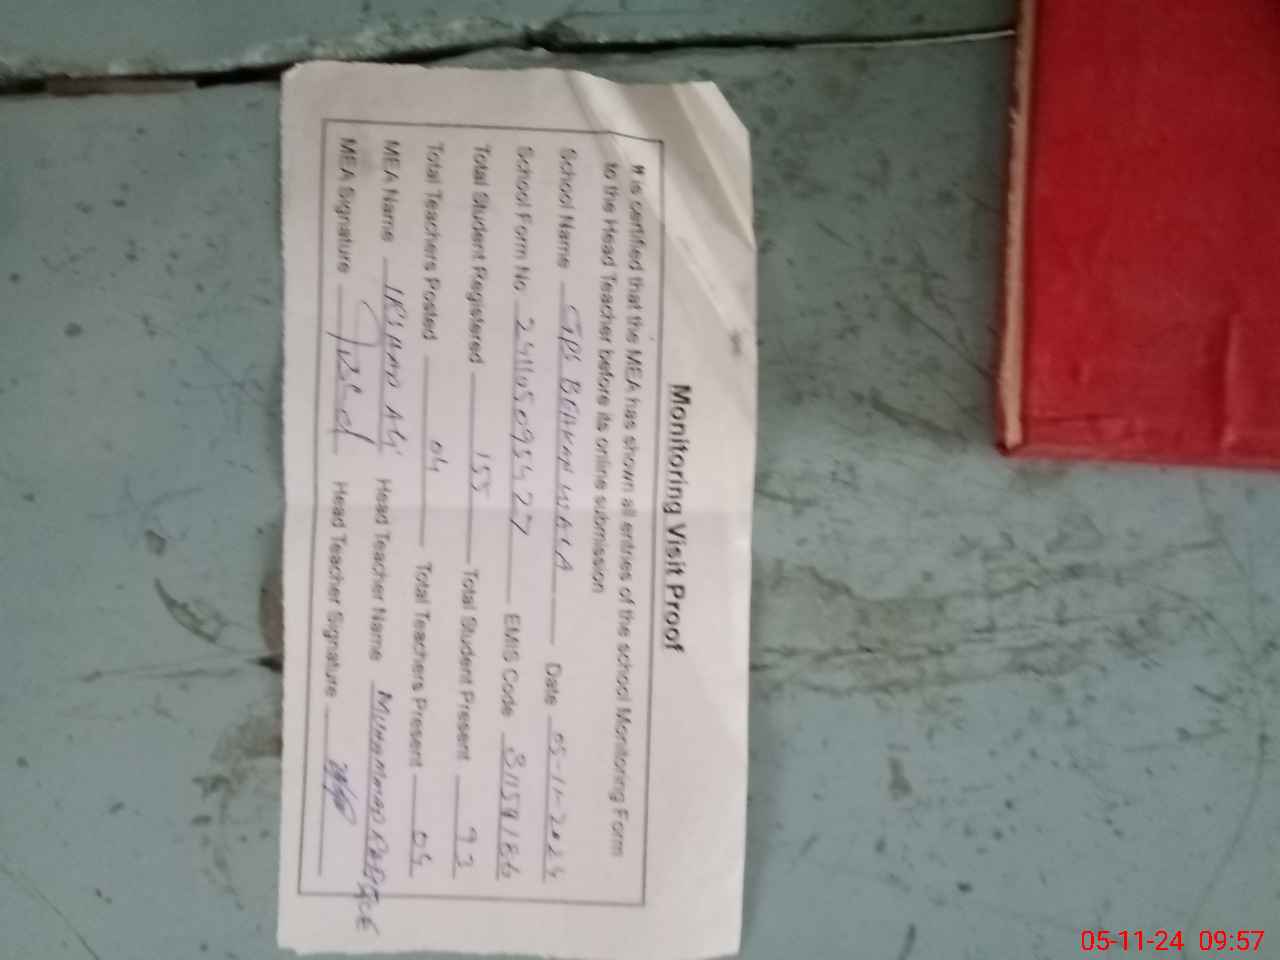 Monitoring Visit Proof
It is certified that the MEA has shown all entries of the school Monitoring Form
to the Head Teacher before its online submission
School Name GPS Date 05-11-2024
School Form No. EMIS Code
Total Student Registered 155 Total Student Present 93
Total Teachers Posted 04 Total Teachers Present 04
MEA Name IRSHAD ALI Head Teacher Name MUHAMMAD
MEA Signature Head Teacher Signature
05-11-24 09:57